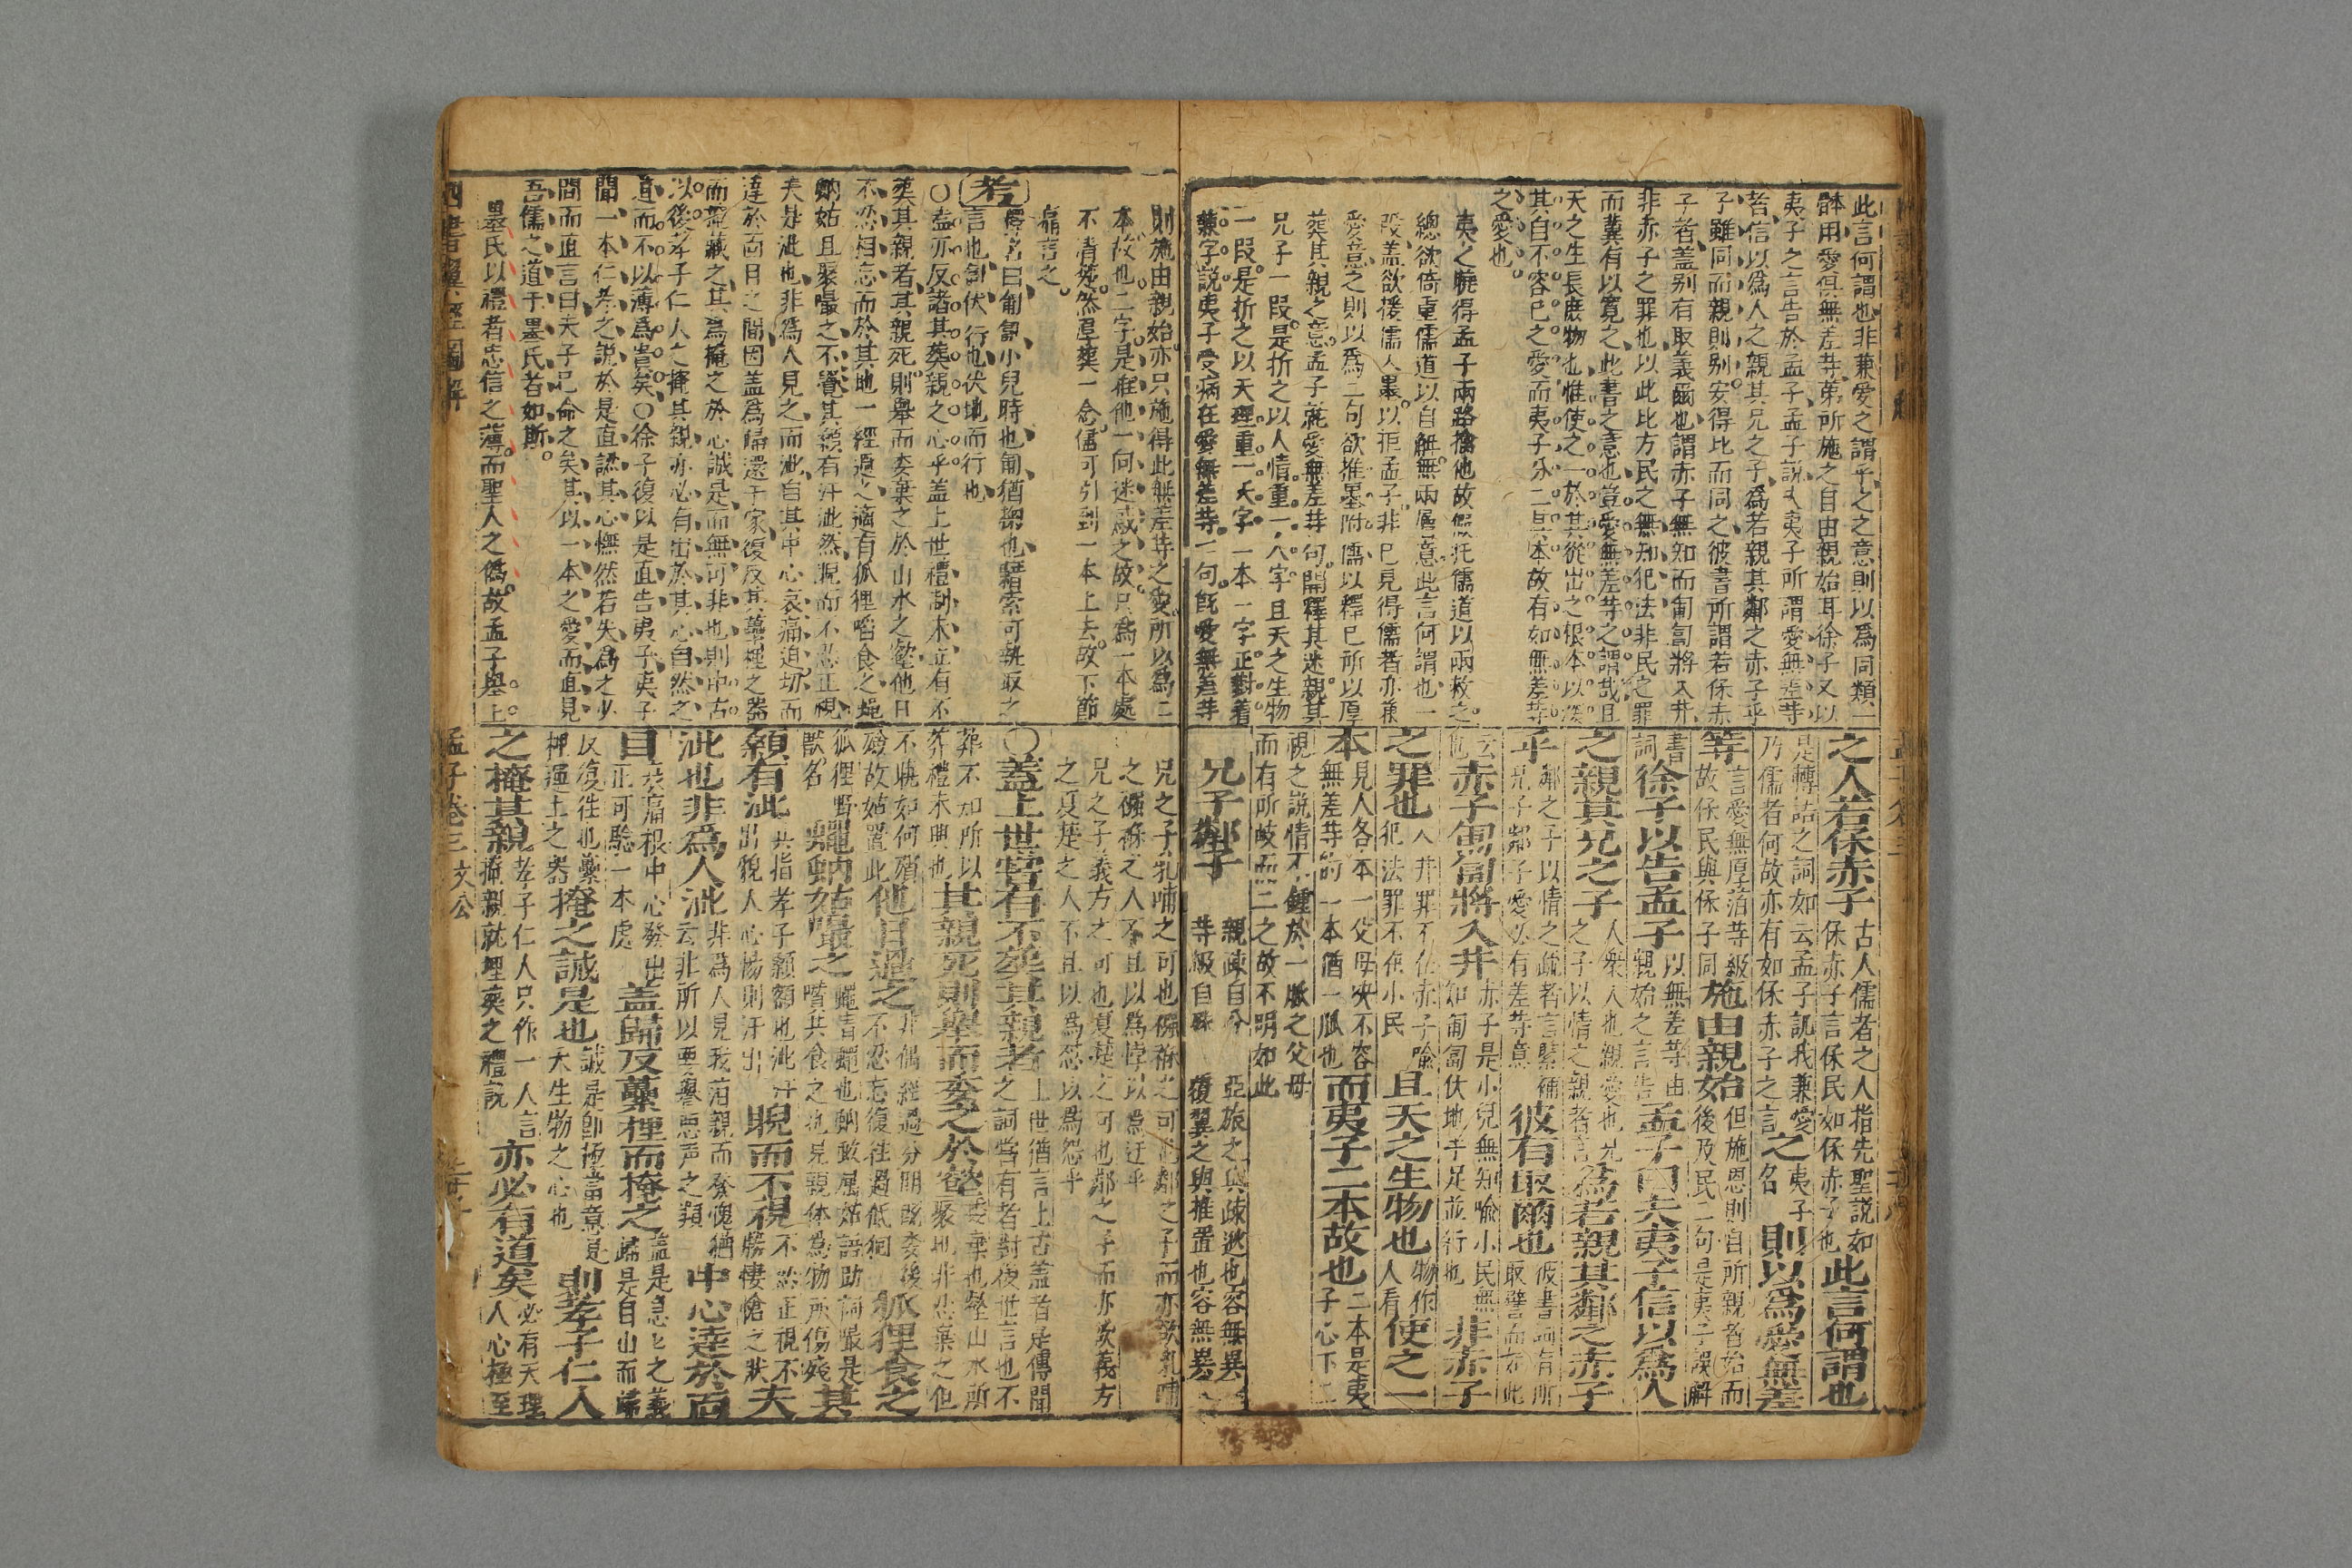 此言何謂也非兼愛之謂乎之之意則以爲同類一
體用愛俱無差等第所施之自由親始耳徐子又以
夷子之言告於孟子孟子說夫夷子所謂愛無差等
者信以爲人之親其兄之子爲若親其鄰之赤子乎
子雖同而親則别安得比而同之彼書所謂若保赤
子者盖别有取義爾也謂赤子無知而匍匐將入井
非赤子之罪也以此比方民之無知犯法非民之罪
而冀有以寬之此書之意也豈愛無差等之謂哉且
天之生長庶物也惟使之一於其從出之根本以
其自不容已之愛而夷子分二其本故有如無差等
之愛也
夷之曉得孟子兩路擒他故假托儒道以兩救之
總欲倚重儒道以自解無兩層意此言何謂也一
段盖欲援儒入墨以拒孟子非已見得儒者亦兼
愛意之則以爲二句欲推墨附儒以釋已所以厚
葬其親之意孟子就愛無差等句開釋其迷親其
兄子一段是折之以人情重一人字且天之生物
一段是折之以天理重一天字一本一字正對着
兼字說夷子受病在愛無差等一句既愛無差等
之人若保赤子 古人儒者之人指先聖説如保赤子言保民如保赤子也 此言何謂也
是轉詰之詞如云孟子訛我兼愛乃儒者何故亦有如保赤子之言 之 夷子名 則以爲愛無差
等 言愛無厚薄等級故保民與保子同 施由親始 但施恩則自所親者始而後及民二句是夷子誤解
書詞 徐子以告孟子 以無差等由親始之言告 孟子曰夫夷子信以爲人
之親其兄之子 人衆人也親愛也兄之子以情之親者言 爲若親其鄰之赤子
乎 鄰之子以情之疏者言緊補兄子鄰子愛必有差等意 彼有取爾也 彼書詞有所取譬而如此
云他 赤子匍匐將入井 赤子是小兒無知喻小民無知匍匐伏地手足並行也 非赤子
之罪也 入井罪不在赤子喻犯法罪不在小民 且天之生物也 物作人看 使之一
本 見人各本一父母决不容無差等的一本猶一脈也 而夷子二本故也 二本是夷子心下二
視之説情不鍾於一脈之父母而有所岐而二之故不明如此
兄子鄰子 親疎自分等級自殊 亞旅之與疎逖也容無異
復翼之與推置也容無異
則施由親始亦只施得此無差等之愛所以爲二
本故也二字是推他一向迷惑之故只爲一本處
不清楚然厚葬一念儘可引到一本上去故下節
痛言之
考 釋名曰匍匐小兒時也匍猶捕也藉索可執取之
言也匐伏行也伏地而行也
○盍亦反諸其葬親之心乎盖上世禮制未立有不
葬其親者其親死則舉而委棄之於山水之壑他日
不忍相忘而於其地一經過之適有狐狸㗖食之蝿
蚋姑且聚嘬之不覺其顙有汗泚然睨而不忍正視
夫是泚也非爲人見之而泚自其中心哀痛迫切而
達於面目之間因盖爲歸還于家復反其虆梩之器
而蓋藏之其爲掩之於心誠是而無可非也則中古
以後孝子仁人之掩其親亦必有出於其心自然之
道而不以薄爲貴矣○徐子復以是直告夷子夷子
聞一本仁孝之説於是直謊其心憮然若失爲之少
間而直言曰夫子已命之矣其以一本之愛而直見
吾儒之道于墨氏者如斯
墨氏以禮者忠信之薄而聖人之僞故孟子舉上
兄之子乳哺之可也襁褓之可也鄰之子而亦欲乳哺
之襁褓之人不且以爲悖以爲迂乎
兄之子義方之可也夏楚之可也鄰之子而亦欲義方
之夏楚之人不且以爲忿以爲怨乎
○蓋上世嘗有不葬其親者 上世猶言上古蓋者是傳聞之詞嘗有者對後世言也不
葬不如所以葬禮未興也 其親死則舉而委之於壑 委棄也壑山水所聚地非忍棄之但
不曉如何殯殮故姑置此 他日過之 非偶經過分明既委後不忍忘復往過低徊 狐狸食之
狐狸野獸名 蠅蚋姑嘬之 蠅青蠅也蚋蚊屬姑語助詞嘬是攢共食之也見親体為物所傷殘 其
顙有泚 其指孝子顙額也泚汗出貌人心惕則汗出 睨而不視 不忍正視不勝悽愴之狀 夫
泚也非爲人泚 非為人見我薄親而發愧猶云非所以要譽惡声之類 中心達於面
目 哀痛根中心發出正可驗一本處 盖歸反虆梩而掩之 蓋是急已之義歸是自山而歸
反復往也虆梩運土之器 掩之誠是也 誠是卽極當意是天生物之心也 則孝子仁人
之掩其親 孝子仁人只作一人言掩親就埋葬之禮説 亦必有道矣 必有天理人心極至
四書翼經圖解
孟子卷三 文公